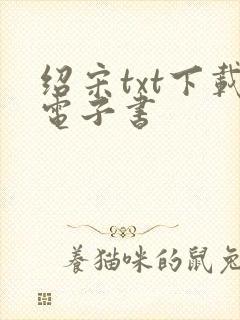 绍宋txt下載
電子書
養猫咪的鼠兔